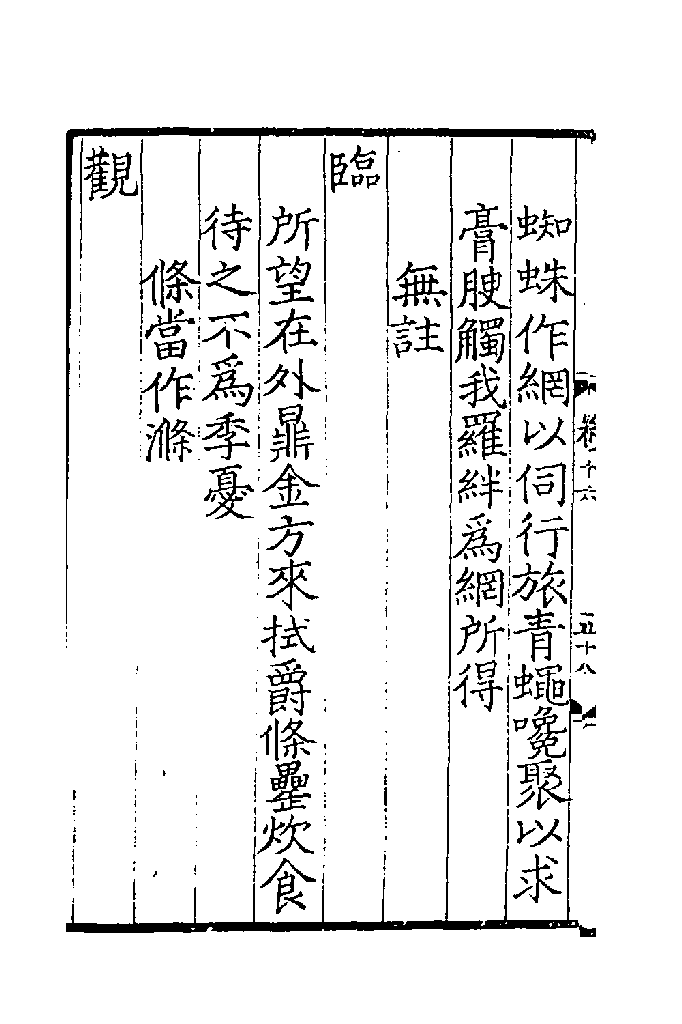 卷十六
五十八
蜘蛛作網以伺行旅青蠅嚵聚以求
膏腴觸我羅絆爲網所得
無註
臨
所望在外鼎金方來拭爵條罍炊食
待之不爲季憂
條當作滌
觀